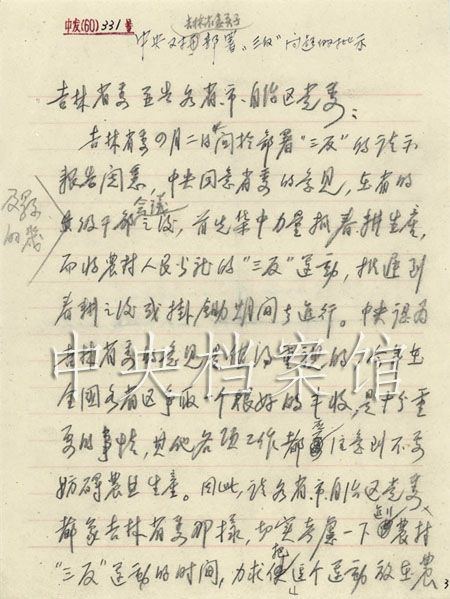 中发(60)331号
中央对部署“三反”问题的批示
吉林省委并告各省、市、自治区党委：
吉林省委四月二日关于部署“三反”的请示
报告阅悉，中央同意省委的意见，在省的
县级干部会议之后，首先集中力量抓春耕生产，
而将農村人民公社的“三反”运動，推遲到
春耕之后或掛鋤期间去進行。中央認为
吉林省委的意见是值得重視的。今年在
全国各省区争取一个很好的丰收，是十分重
要的事情，其他各项工作都要注意到不要
妨碍農业生產。因此，请各省、市、自治区党委，
都象吉林省委那樣，切实考慮一下進行農村
“三反”運動的时间，力求把這个運動放在農
中央档案馆
3